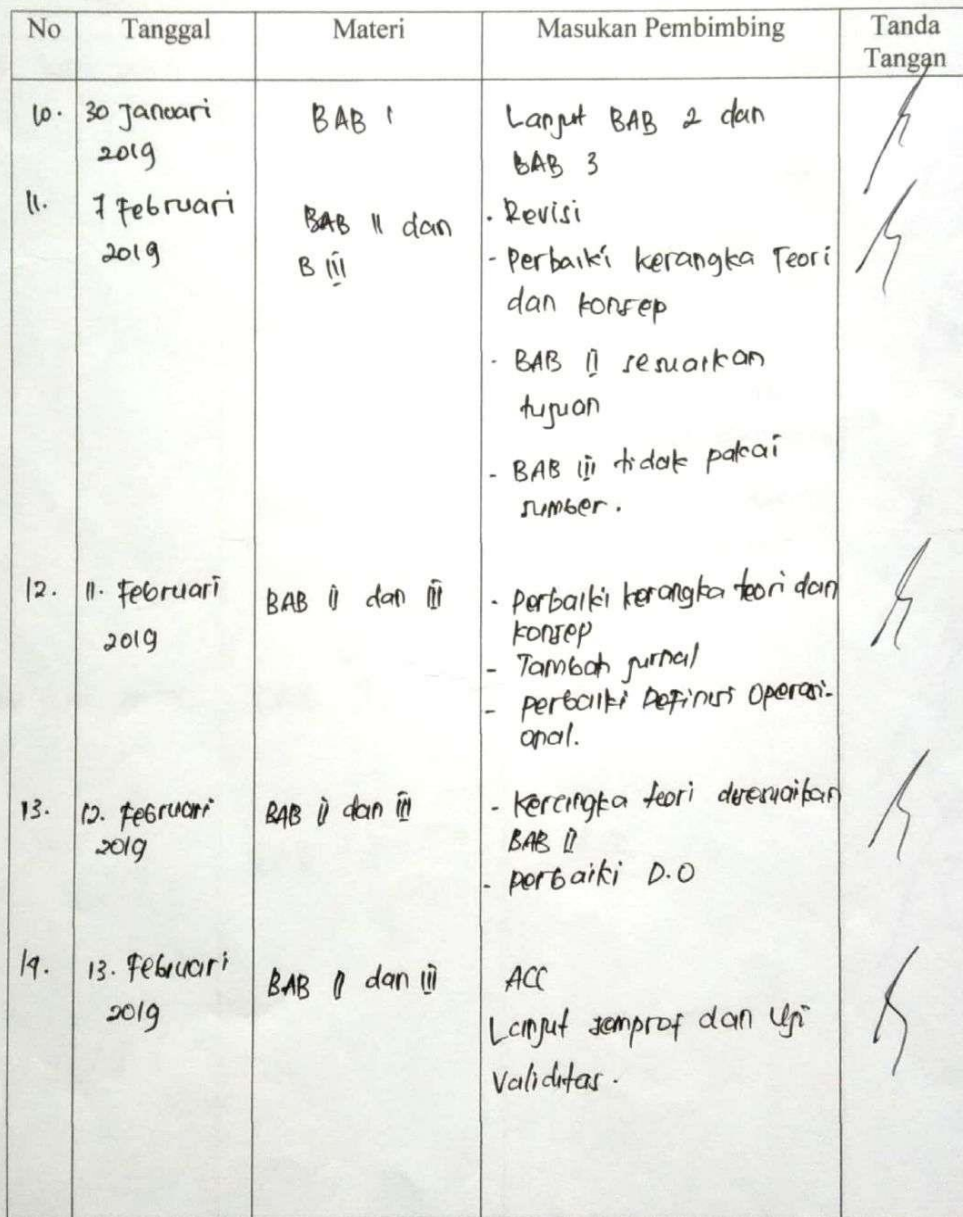 No Tanggal Materi Masukan Pembimbing Tanda Tangan
10. 30 Januari 2019 BAB I Lanjut BAB 2 dan BAB 3
11. 7 Februari 2019 BAB II dan B III . Revisi
- Perbaiki kerangka Teori
dan konsep
- BAB II sesuaikan
tujuan
- BAB III tidak pakai
sumber.
12. 11. Februari 2019 BAB II dan III - Perbaiki kerangka teori dan
konsep
- Tambah jurnal
- perbaiki Definisi Operasi-
onal.
13. 12. Februari 2019 BAB II dan III - kerangka teori disesuaikan
BAB II
- perbaiki D.O
14. 13. Februari 2019 BAB II dan III ACC
Lanjut semprof dan Uji
Validitas.